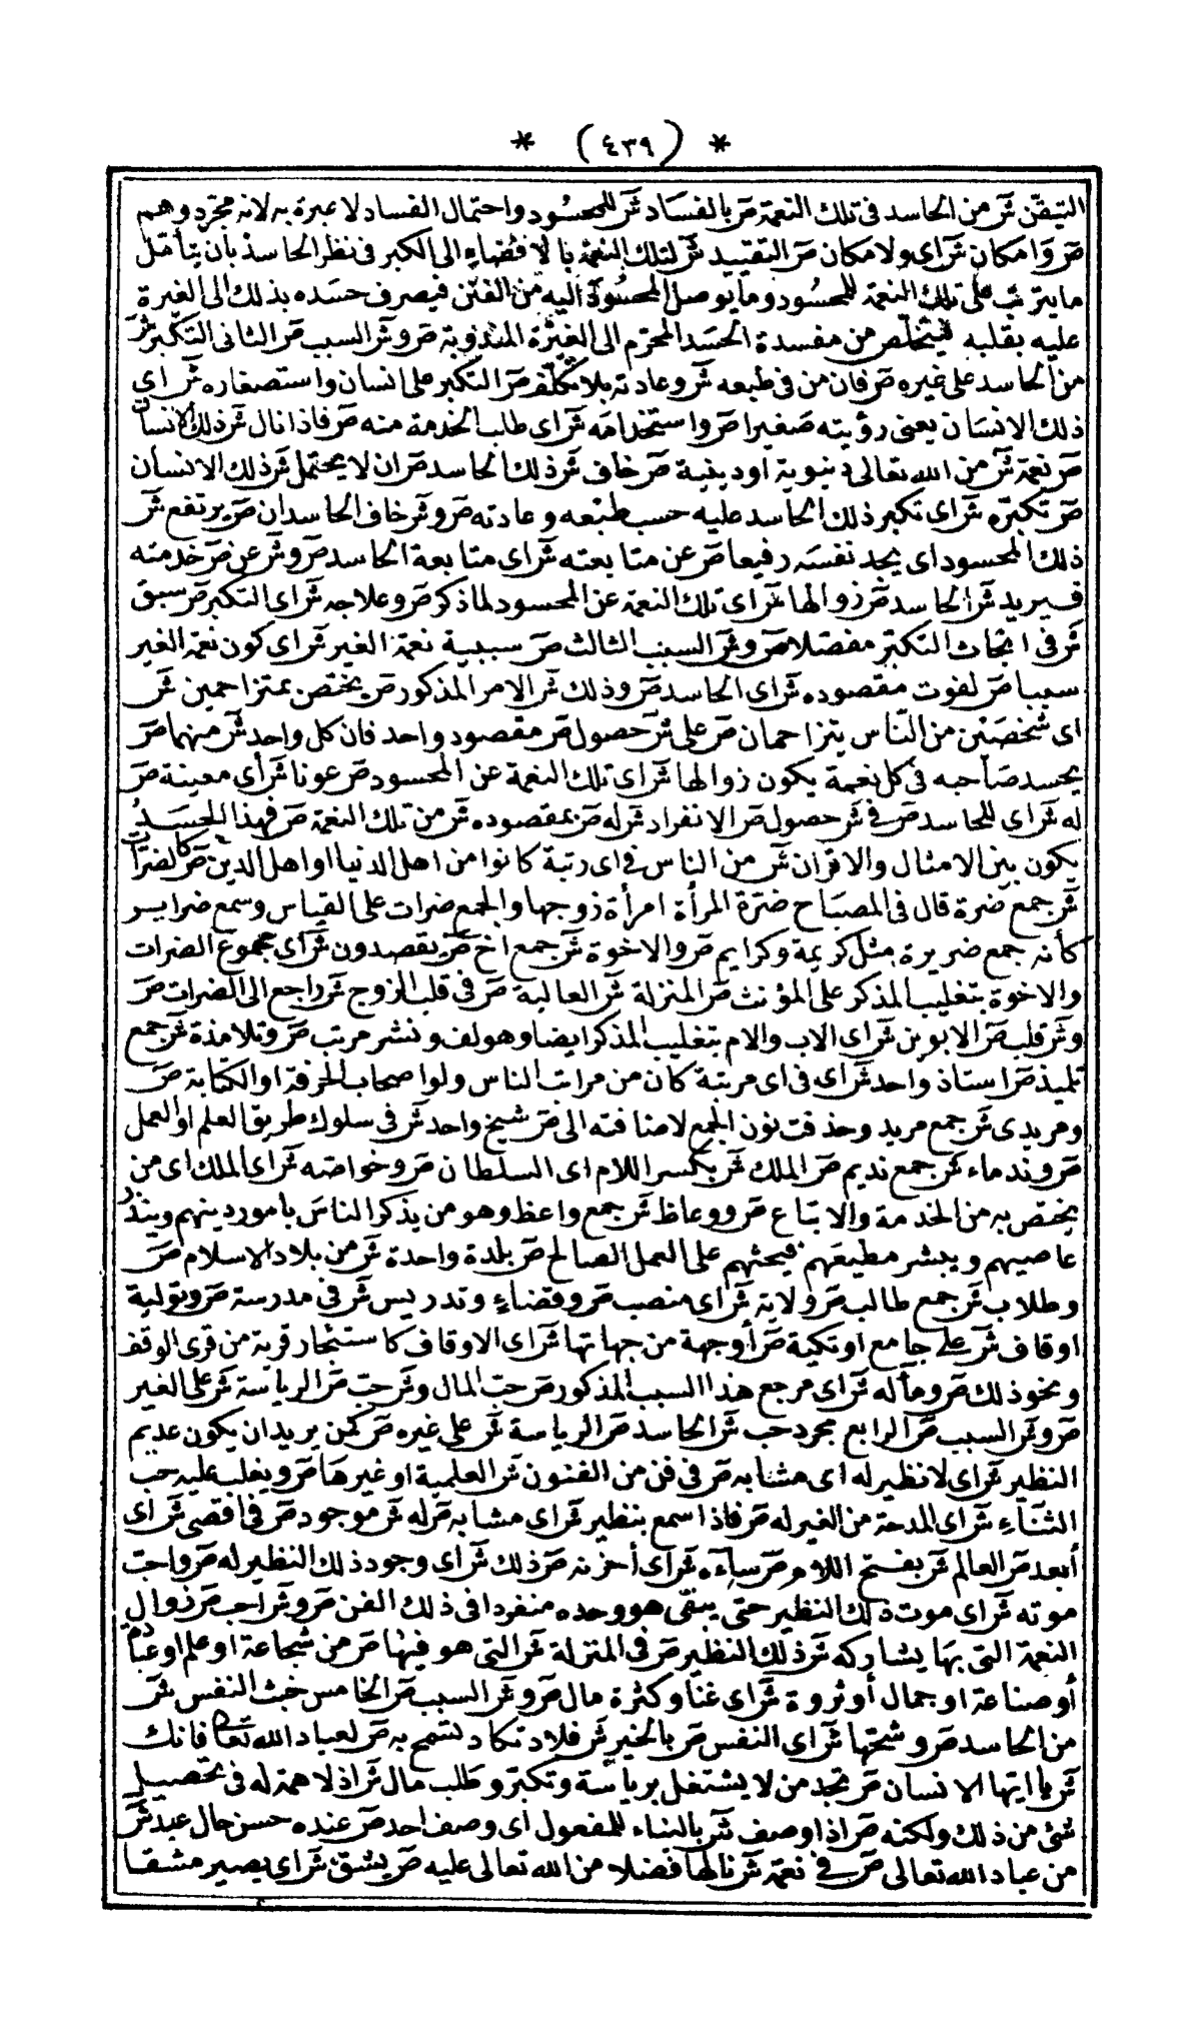 * (٤٣٩) *
التيقن ش من الحاسد فى تلك النعمة ص بالفساد ش للمحسود واحتمال الفساد لا عبرة به لانه مجرد وهم
ص وامكان ش اى ولا مكان ص التقييد ش لتلك النعمة بالافضاء الى الكبر فى نظر الحاسد بان يتأمل
ما يترتب على تلك النعمة للمحسود وما يوصل المحسود اليه من الفتن فيصرف حسده بذلك الى الغيرة
عليه بقلبه فيتخلص من مفسدة الحسد المحرم الى الغيرة المندوبة ص و ش السبب ص الثانى التكبر ش
من الحاسد على غيره ص فان من فى طبعه ش وعادته بلا تكلف ص التكبر على انسان واستصغاره ش اى
ذلك الانسان يعنى رؤيته صغيرا ص واستخدامه ش اى طلب الخدمة منه ص فاذا نال ش ذلك الانسان
ص نعمة ش من الله تعالى دنيوية او دينية ص خاف ش ذلك الحاسد ص ان لا يحتمل ش ذلك الانسان
ص تكبره ش اى تكبر ذلك الحاسد عليه حسب طبعه وعادته ص و ش خاف الحاسد ان ص يرتفع ش
ذلك المحسود اى يجد نفسه رفيعا ص عن متابعته ش اى متابعة الحاسد ص و ش عن ص خدمته
فيريد ش الحاسد ص زوالها ش اى تلك النعمة عن المحسود لما ذكر ص وعلاجه ش اى التكبر ص سبق
ش فى ابحاث التكبر مفصلا ص و ش السبب الثالث ص سببية نعمة الغير ش اى كون نعمة الغير
سببا ص لفوت مقصوده ش اى الحاسد ص وذلك ش الامر المذكور ص يختص بمتزاحمين ش
اى شخصين من الناس يتزاحمان ص على ش حصول ص مقصود واحد فان كل واحد ش منهما ص
يحسد صاحبه فى كل نعمة يكون زوالها ش اى تلك النعمة عن المحسود ص عونا ش أى معينة ص
له ش اى للحاسد ص فى ش حصول ص الانفراد ش له ص بمقصوده ش من تلك النعمة ص فهذا الحسد
يكون بين الامثال والاقران ش من الناس فى اى رتبة كانوا من اهل الدنيا او اهل الدين ص كالضرات
ش جمع ضرة قال فى المصباح ضرة المرأة امرأة زوجها والجمع ضرات على القياس وسمع ضراير
كأنه جمع ضريرة مثل كريمة وكرايم ص والاخوة ش جمع اخ ص يقصدون ش اى مجموع الضرات
والاخوة بتغليب المذكر على المؤنث ص المنزلة ش العالية ص فى قلب الزوج ش راجع الى الضرات ص
و ش قلب ص الابوين ش اى الاب والام بتغليب المذكر ايضا وهو لف ونشر مرتب ص وتلامذة ش جمع
تلميذ ص استاذ واحد ش اى فى اى مرتبة كان من مراتب الناس ولو اصحاب الحرفة او الكتابة ص
ومريدى ش جمع مريد وحذفت نون الجمع لاضافته الى ص شيخ واحد ش فى سلوك طريق العلم او العمل
ص وندماء ش جمع نديم ص الملك ش بكسر اللام اى السلطان ص وخواصه ش اى الملك اى من
يختص به من الخدمة والاتباع ص ووعاظ ش جمع واعظ وهو من يذكر الناس بامور دينهم وينذر
عاصيهم ويبشر مطيعهم فيحثهم على العمل الصالح ص بلدة واحدة ش من بلاد الاسلام ص
وطلاب ش جمع طالب ص ولاية ش اى منصب ص وقضاء وتدريس ش فى مدرسة ص وتولية
اوقاف ش على جامع او تكية ص أو جهة من جهاتها ش اى الاوقاف كاستئجار قرية من قرى الوقف
ونحو ذلك ص ومآله ش اى مرجع هذا السبب المذكور ص حب المال و ش حب ص الرياسة ش على الغير
ص و ش السبب ص الرابع مجرد حب ش الحاسد ص الرياسة ش على غيره ص كمن يريد ان يكون عديم
النظير ش اى لا نظير له اى مشابه ص فى فن من الفنون ش العلمية او غيرها ص ويغلب عليه حب
الثناء ش اى المدحة من الغير له ص فاذا سمع بنظير ش اى مشابه ص له ش موجود ص فى اقصى ش اى
أبعد ص العالم ش بفتح اللام ص ساءه ش اى أحزنه ص ذلك ش اى وجود ذلك النظير له ص واحب
موته ش اى موت ذلك النظير حتى يبقى هو وحده منفردا فى ذلك الفن ص و ش احب ص زوال
النعمة التى بها يشاركه ش ذلك النظير ص فى المنزلة ش التى هو فيها ص من شجاعة او علم او عبادة
أو صناعة او جمال أو ثروة ش اى غنا وكثرة مال ص و ش السبب ص الخامس خبث النفس ش
من الحاسد ص وشحها ش اى النفس ص بالخير ش فلا تكاد تسمح به ص لعباد الله تعالى فانك
ش يا ايها الانسان ص تجد من لا يشتغل برياسة وتكبر وطلب مال ش اذ لا همة له فى تحصيل
شئ من ذلك ولكنه ص اذا وصف ش بالبناء للمفعول اى وصف احد ص عنده حسن حال عبد ش
من عباد الله تعالى ص فى نعمة ش نالها فضلا من الله تعالى عليه ص يشق ش اى يصير مشقا